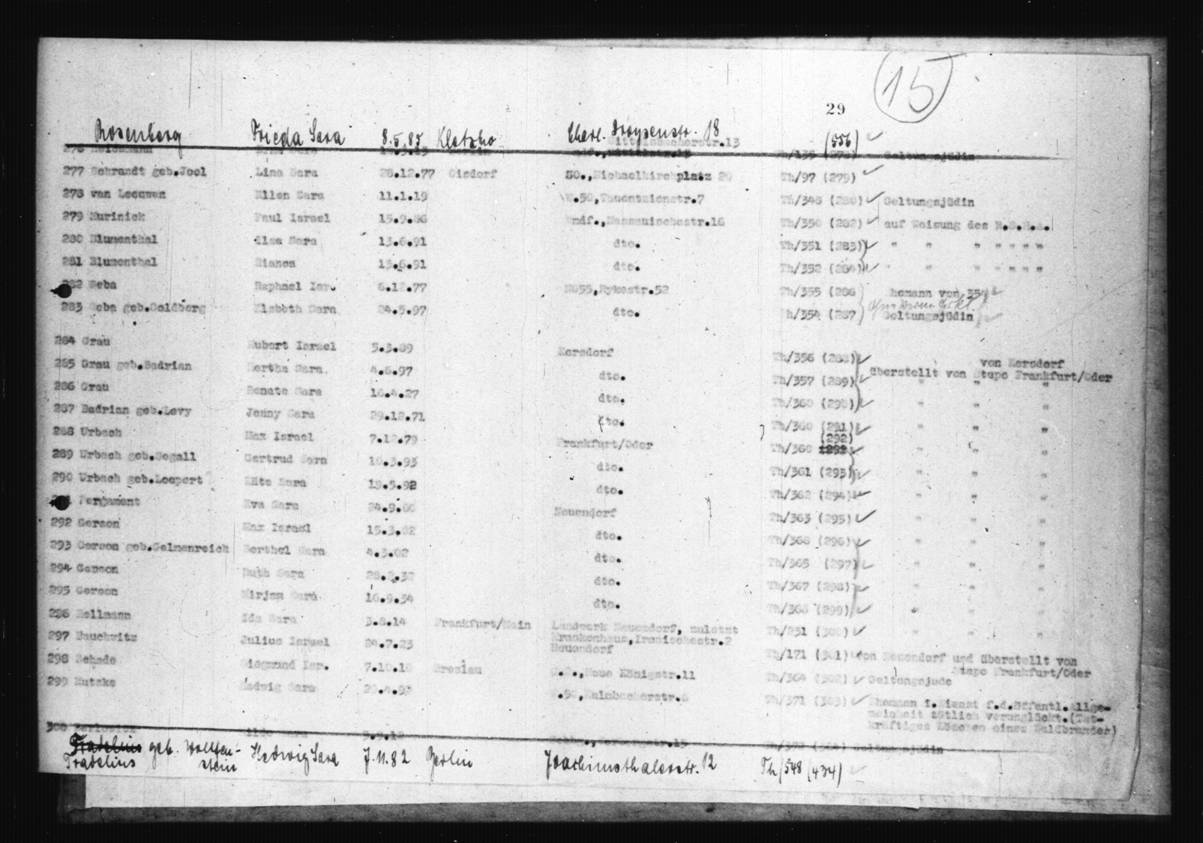 15
29
Rosenberg Frieda Sara 8.5.87 Kletzko Charl. Droysenstr. 18 (556)
Th/135 (278) Geltungsjüdin
277 Schrandt geb.Joel Lina Sara 28.12.77 Oisdorf SO., Michaelkirchplatz 29 Th/97 (279)
278 van Leeuwen Ellen Sara 11.1.19 W.50, Tauentzienstr.7 Th/348 (280) Geltungsjüdin
279 Kurinick Paul Israel 15.9.86 Wmdf., Nassauischestr.16 Th/350 (282) auf Weisung des R.S.H.A.
280 Blumenthal Ilse Sara 13.6.91 dto. Th/351 (283) " " " " " " "
281 Blumenthal Bianca 13.6.91 dto. Th/352 (284) " " " " " " "
282 Seba Raphael Isr. 6.12.77 NO55, Rykestr.52 Th/355 (286
283 Seba geb.Goldberg Elsbeth Sara 24.5.97 dto. Th/354 (287 Geltungsjüdin
284 Grau Hubert Israel 5.3.89 Kersdorf Th/356 (288) von Kersdorf
285 Grau geb.Badrian Hertha Sara 4.6.97 dto. Th/357 (289) überstellt von Stapo Frankfurt/Oder
286 Grau Renate Sara 16.4.27 dto. Th/360 (290) " " "
287 Badrian geb.Levy Jenny Sara 29.12.71 dto. Th/360 (291) " " "
288 Urbach Max Israel 7.12.79 Frankfurt/Oder Th/360 (292) " " "
289 Urbach geb.Segall Gertrud Sara 16.3.93 dto. Th/361 (293) " " "
290 Urbach geb.Loepert Käte Sara 19.5.92 dto. Th/362 (294) " " "
Pergament Eva Sara Neuendorf Th/363 (295) " " "
292 Gerson Max Israel 15.3.02 dto. Th/366 (296) " " "
293 Gerson geb.Salmenreich Berthel Sara 4.3.02 dto. Th/365 (297) " " "
294 Gerson Ruth Sara dto. Th/367 (298) " " "
295 Gerson Mirjam Sara 16.9.34 dto. Th/368 (299) " " "
296 Hellmann Ida Sara 3.8.14 Frankfurt/Main Landwerk Neuendorf, zuletzt Krankenhaus, Iranischestr.2 Th/231 (300) " " "
297 Bauchwitz Julius Israel 24.7.23 Neuendorf Th/171 (301) von Neuendorf und überstellt von Stapo Frankfurt/Oder
298 Schade Siegmund Isr. 7.10.18 Breslau Neue Königstr.11 Th/364 (302) Geltungsjude
299 Kutzke Hedwig Sara 29.4.93 W.50, Kulmbacherstr.6 Th/371 (303) Ehemann i.Dienst f.d.öffentl.Allgemeinheit tötlich verunglückt.(Tatkräftiges Löschen eines Waldbrandes)
300
Geltungsjüdin
Tradelius geb. Wollstein
Tradelius Hedwig Sara 7.11.82 Berlin Joachimsthalerstr. 12 Th/548 (434)